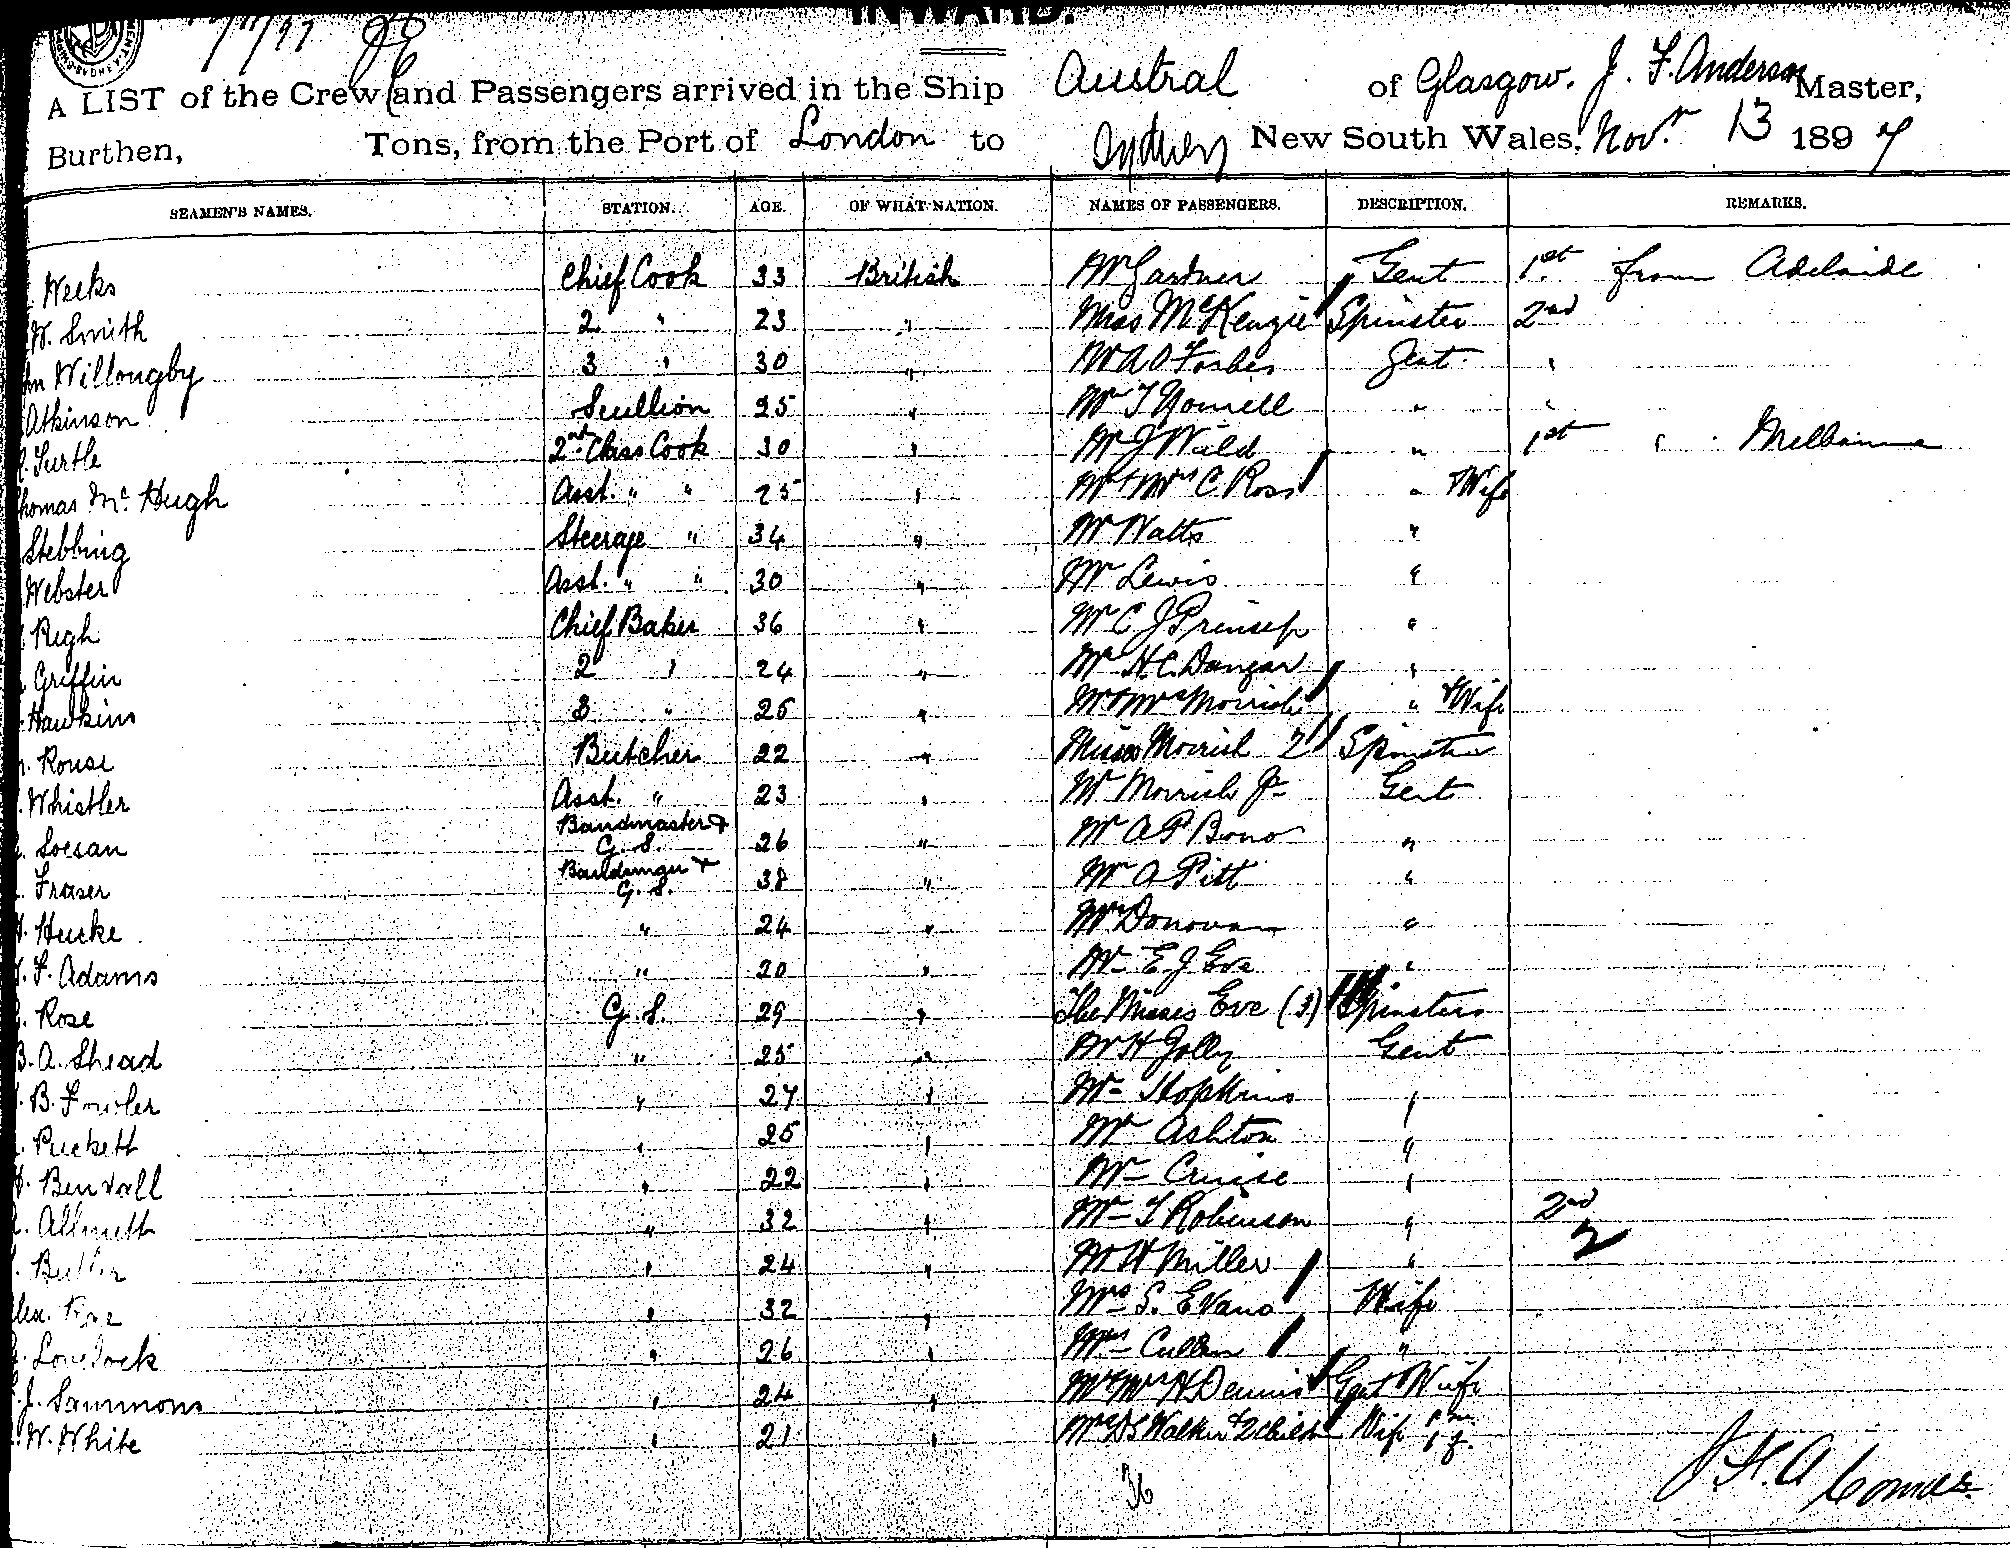 INWARD.
A LIST of the Crew and Passengers arrived in the Ship Austral of Glasgow. J. F. Anderson Master,
Burthen, Tons, from the Port of London to Sydney New South Wales, Novr 13 1897
SEAMEN'S NAMES. STATION. AGE. OF WHAT NATION. NAMES OF PASSENGERS. DESCRIPTION. REMARKS.
Weeks Chief Cook 33 British Mr Gardner Gent 1st from Adelaide
W. Smith 2 " 23 " Miss McKenzie Spinster 2nd
Willongby 3 " 30 " Mr A O Forbes Gent "
Atkinson Scullion 25 " Mr T " "
Turtle 2nd Class Cook 30 " Mr J Wild " 1st " Melbourne
Thomas Mc Hugh Asst. " " 25 " Mr & Mrs C. Ross " Wife
Stebbing Steerage " 34 " Mr Watts "
Webster Asst. " " 30 " Mr Lewis "
Righ Chief Baker 36 " Mr C J Prinsep "
Griffin 2 " 24 " Mr H C. Dangar "
Hawkins 3 " 25 " Mr & Mrs Morrish " & Wife
Rouse Butcher 22 " Misses Morrish 2 Spinster
Whistler Asst. " 23 " Mr Morrish Jr Gent
Soesan Bandmaster & G. S. 26 " Mr A P Bono "
Fraser G. S. 38 " Mr A Pitt "
Hucke " 24 " Mr Donovan "
F. Adams " 20 " Mr E J Eve "
Rose G. S. 29 " The Misses Eve (3) Spinsters
B. A. Shead " 25 " Mr H Jolly Gent
B. Fowler " 27 " Mr Hopkins "
Puckett " 25 " Mr Ashton "
Bendall " 22 " Mr Cruise "
" 32 " Mr T Robinson " 2nd
Butler " 24 " Mr H Miller " 2
" 32 " Mrs S. Evans Wife
Lovelock " 26 " Mrs Cullen "
J. Sammons " 24 " Mr & Mrs H Dennis Gent & Wife
W. White " 21 " Mrs Walker & 2 child Wife 1 m 1 f.
36